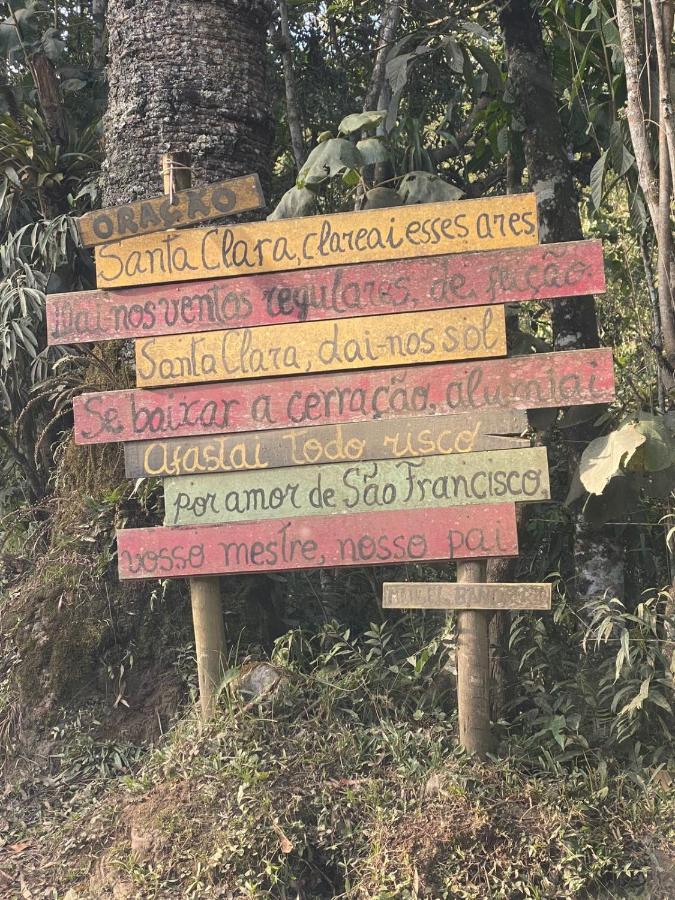 ORAÇÃO
Santa Clara, clareai esses ares
Dai nos ventos regulares, de feição
Santa Clara, dai-nos sol
Se baixar a cerração, alumiai
Afastai todo risco
por amor de São Francisco,
vosso mestre, nosso pai
MANUEL BANDEIRA